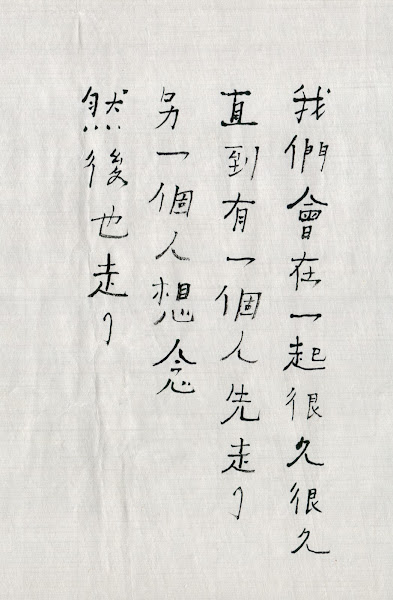 我們會在一起很久很久
直到有一個人先走了
另一個人想念
然後也走了